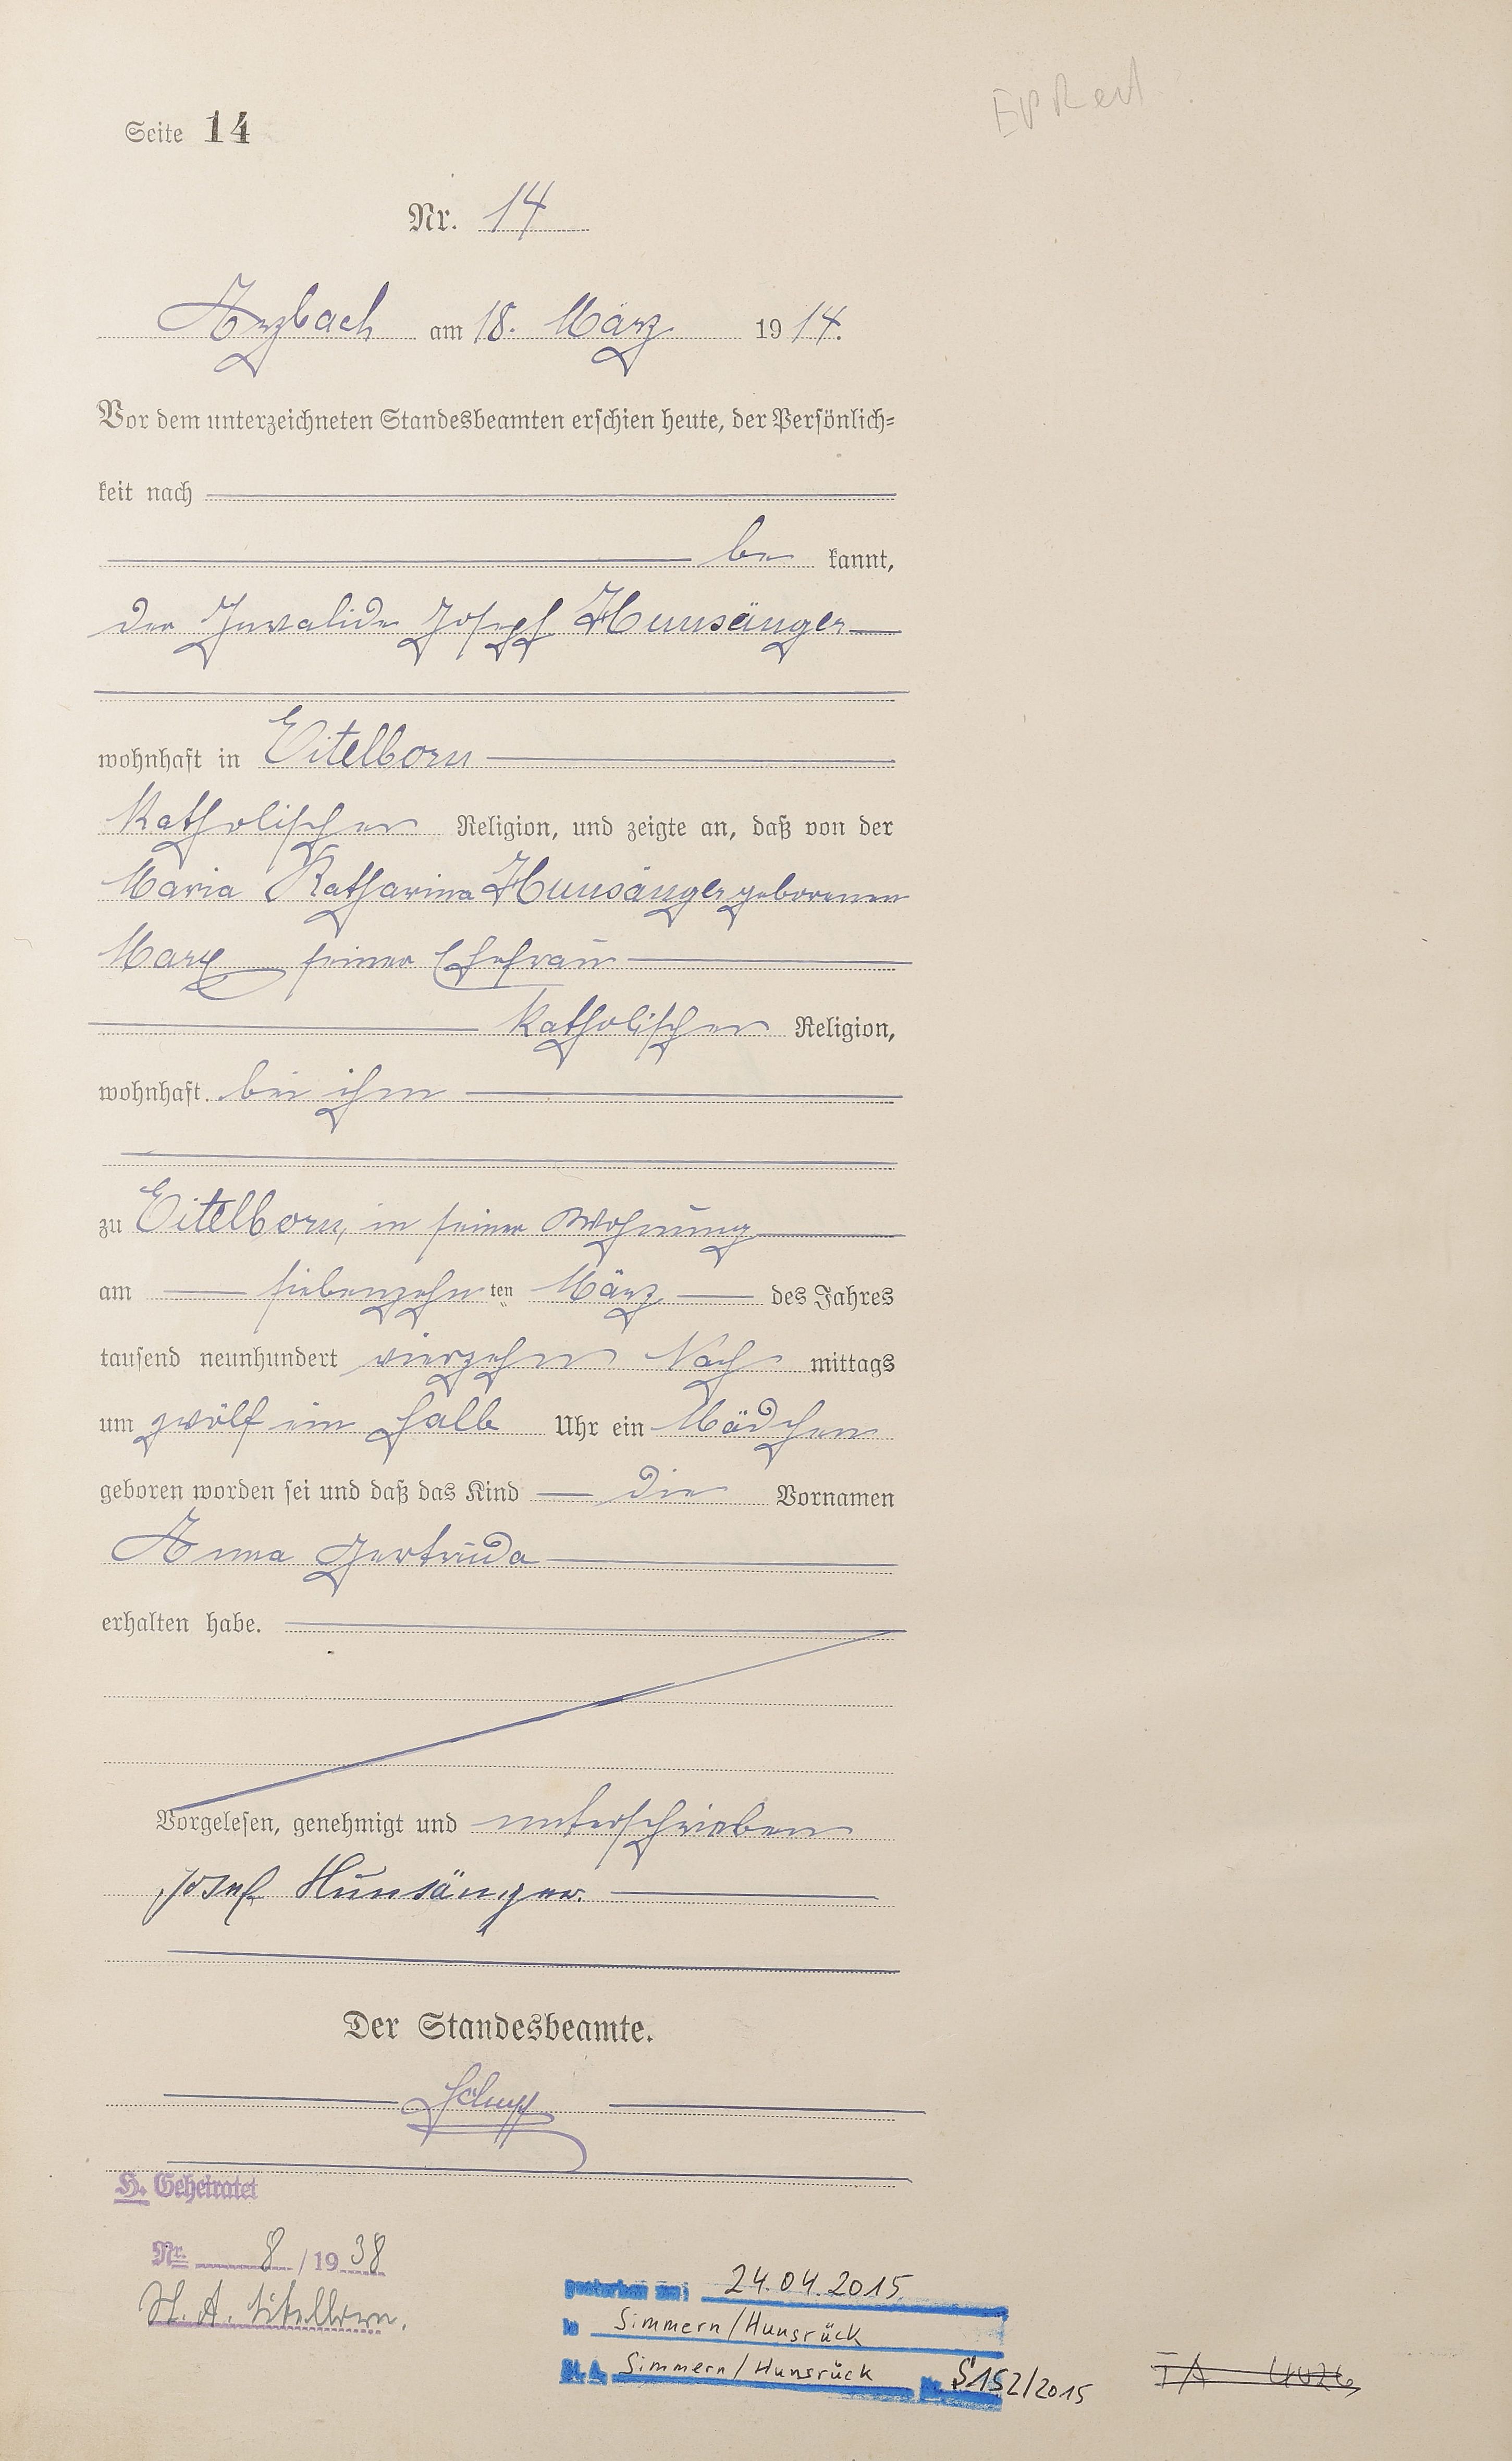 Seite 14
Nr. 14
Arzbach am 18. März 1914.
Vor dem unterzeichneten Standesbeamten erschien heute, der Persönlich=
keit nach
be kannt,
der Invalide Joseph Hunsänger
wohnhaft in Eitelborn
katholischer Religion, und zeigte an, daß von der
Maria Katharina Hunsänger geborenen
Marx seiner Ehefrau
katholischer Religion,
wohnhaft bei ihm
zu Eitelborn, in seiner Wohnung
am siebenzehn ten März des Jahres
tausend neunhundert vierzehn Nach mittags
um zwölf ein halb Uhr ein Mädchen
geboren worden sei und daß das Kind die Vornamen
Anna Gertruda
erhalten habe.
Vorgelesen, genehmigt und unterschrieben
Josef Hunsänger.
Der Standesbeamte.
H. Geheiratet
Nr. 8 / 1938
St. A. Eitelborn.
gestorben am: 24.04.2015
in Simmern/Hunsrück
St. A. Simmern/Hunsrück Nr. S152/2015